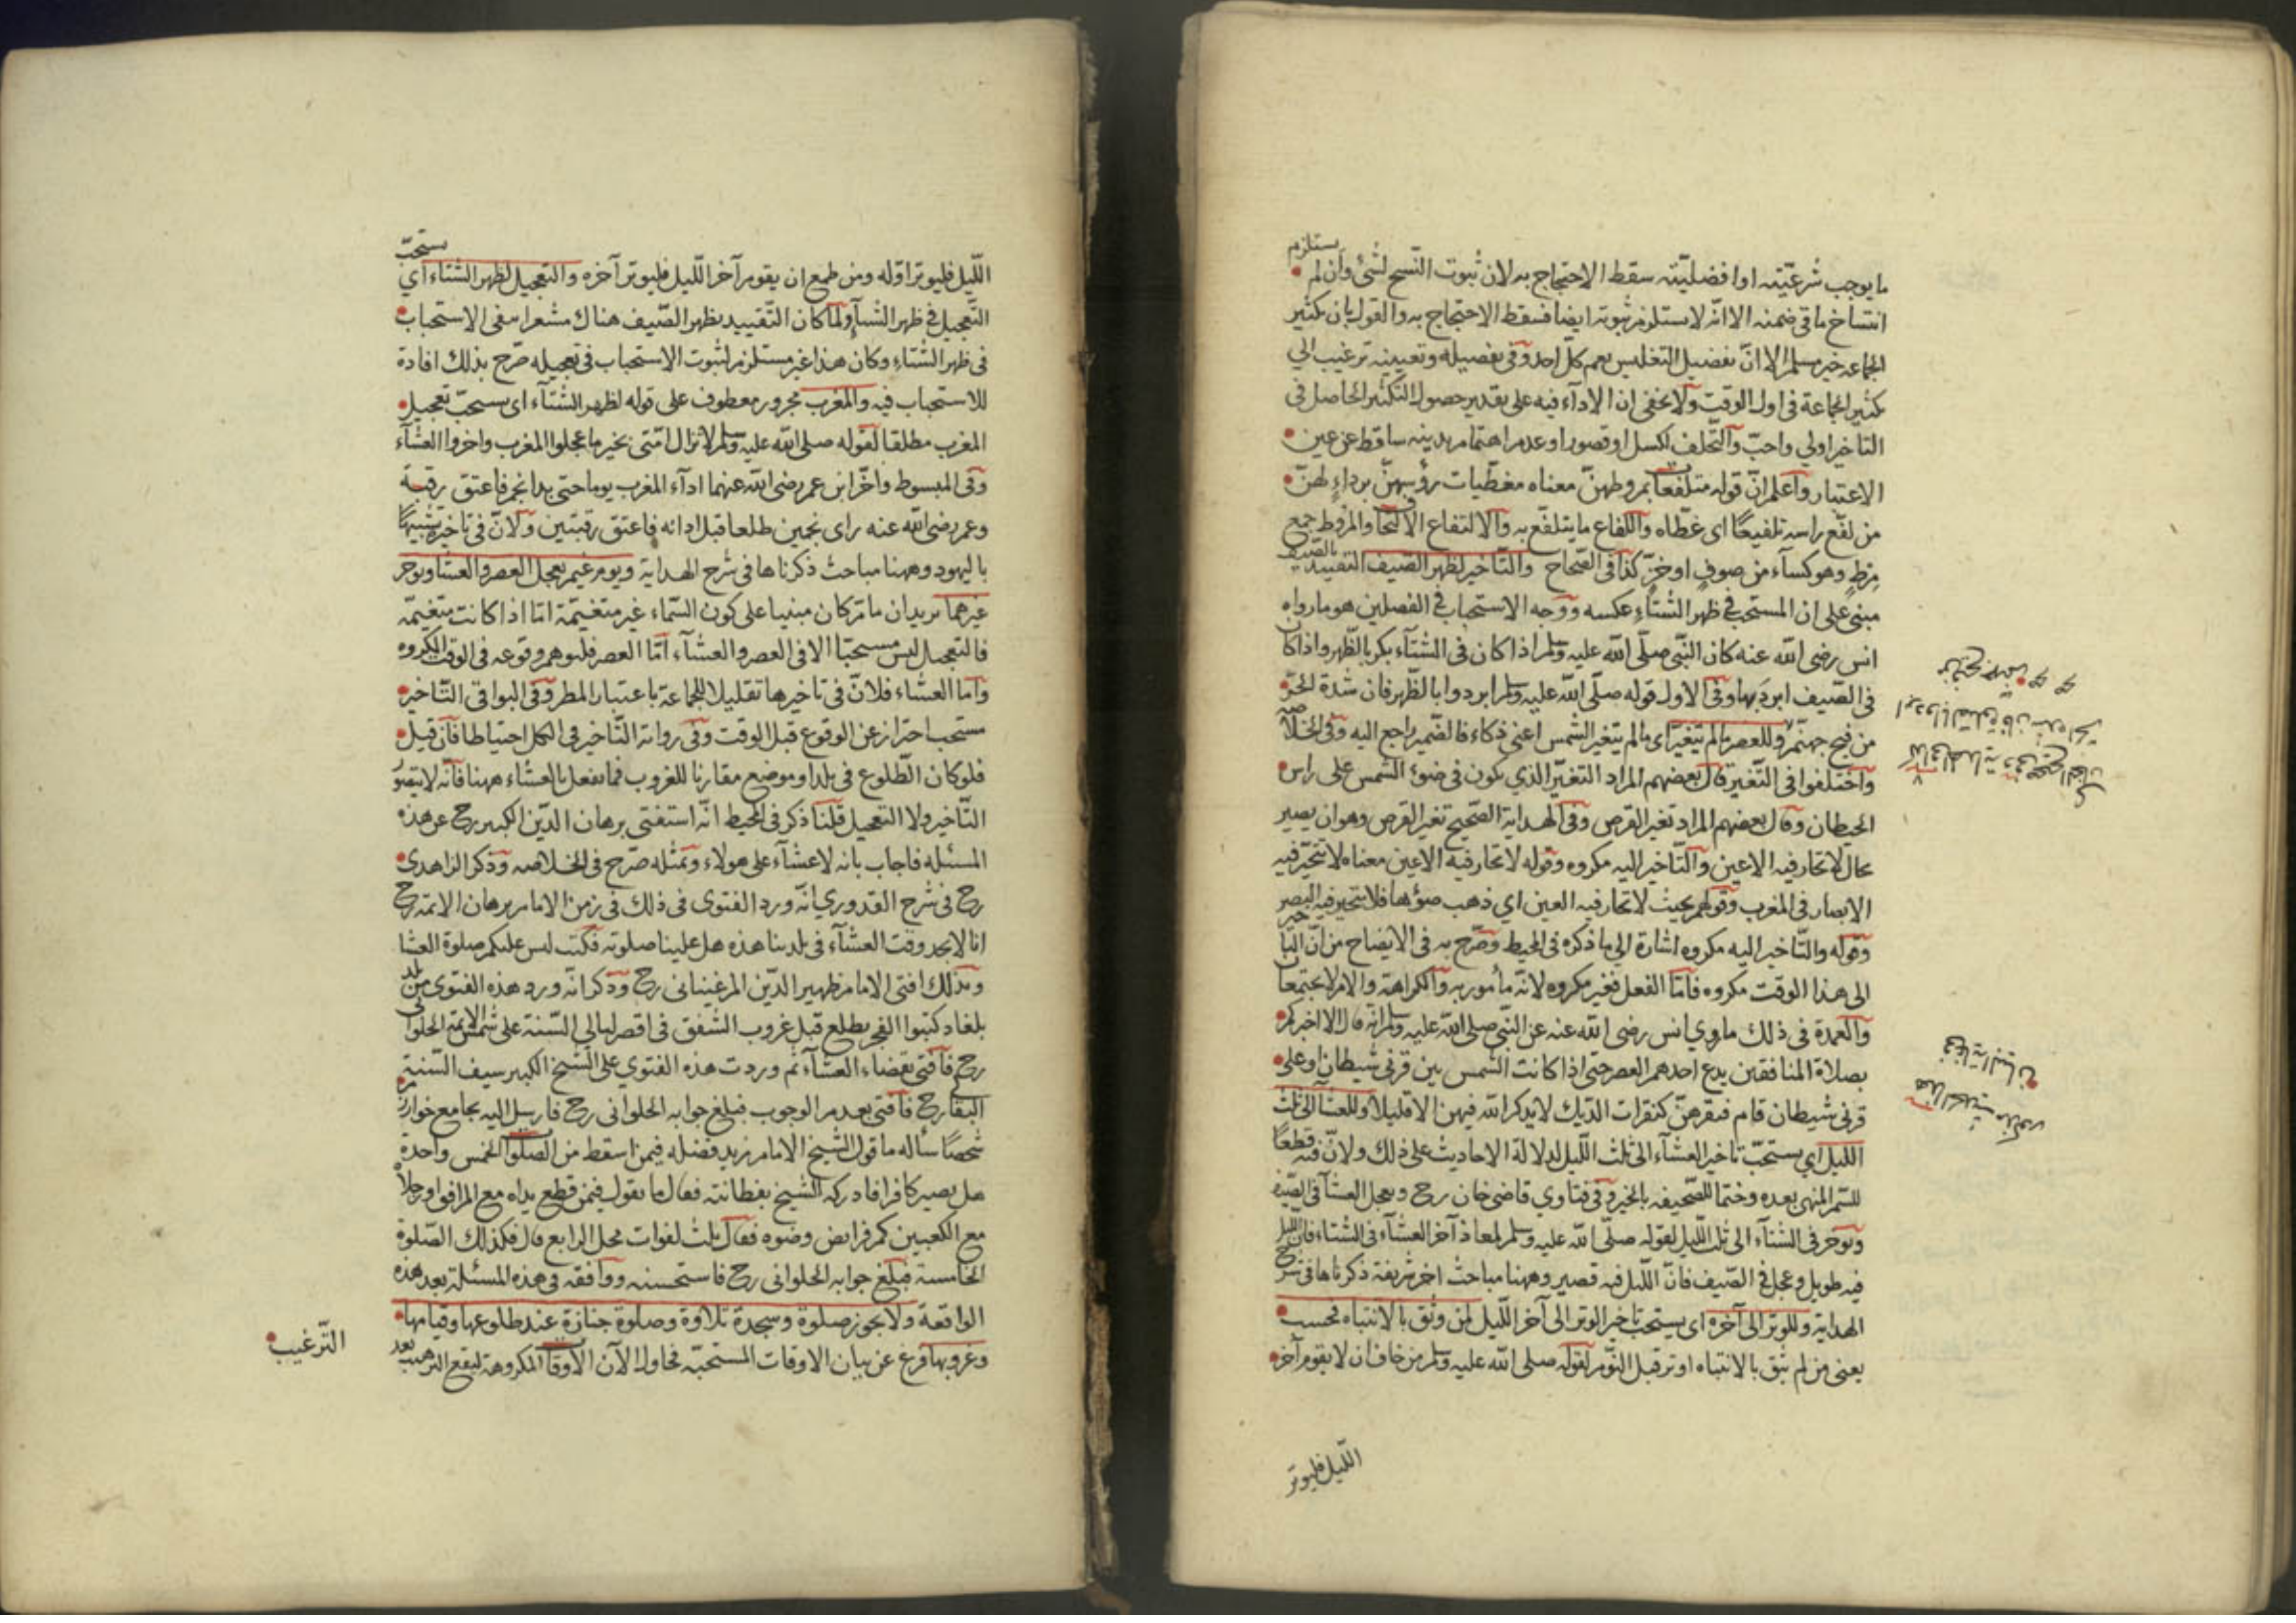 ما يوجب شرعيّته او افضليّته سقط الاحتجاج به لان ثبوت النّسخ لشئ وان لم يستلزم
انتساخ ما في ضمنه الا انّه لا يستلزم ثبوته ايضا فسقط الاحتجاج به والقول بان تكثير
الجماعة خير مسلم الا انّ تفضيل التغليس يعم كلّ احد وفي تفصيله وتعيينه ترغيب الي
تكثير الجماعة في اول الوقت ولا يخفى ان الاداء فيه على تقدير حصول التكثّر الحاصل في
التاخير اولي واحبّ والتّخلف لكسل او قصور او عدم اهتمام بدينه ساقط عن عين
الاعتبار واعلم انّ قوله متلفعات بمروطهنّ معناه مغطّيات رؤسهنّ برداء لهنّ
من لفّع راسه تلفيعًا اى غطّاه واللفاع ما يتلفّع به والالتفاع الالتحاف والمروط جمع
مِرْطٍ وهو كساء من صوفٍ او خزٍّ كذا فى الصّحاح والتّاخير لظهر الصّيف التقييد بالصّيف
مبنى على ان المستحب في ظهر الشّتاء عكسه ووجه الاستحباب في الفصلين هو ما رواه
انس رضى الله عنه كان النّبى صلّى الله عليه وسلم اذا كان فى الشتاء بكر بالظّهر واذا كان
فى الصّيف ابرد بها وفى الاول قوله صلّى الله عليه وسلم ابردوا بالظّهر فان شدة الحرّ
من فيح جهنّم وللعصر ما لم يتغير اى ما لم يتغير الشمس اعنى ذكاء فالضّمير راجع اليه وفى الخلاصه
واختلفوا فى التّغير قال بعضهم المراد التغيّر الذي يكون فى ضوء الشّمس على راس
الحيطان وقال بعضهم المراد تغير القرص وفى الهداية الصّحيح تغير القرص وهو ان يصير
بحال لا تحار فيه الاعين والتّاخير اليه مكروه وقوله لا تحار فيه الاعين معناه لا يتحيّر فيه
الابصار فى المغرب وقولهم بحيث لا تحار فيه العين اي ذهب ضوؤها فلا يتحير فيه البصر
وقوله والتّاخير اليه مكروه اشارة الى ما ذكره فى المحيط وصرّح به فى الايضاح من انّ التاخير
الى هذا الوقت مكروه فامّا الفعل فغير مكروه لانّه مأمور به والكراهة والامر لا يجتمعان
والعمدة فى ذلك ما روي انس رضى الله عنه عن النّبى صلى الله عليه وسلم انّه قال الا اخبركم
بصلاة المنافقين يدع احدهم العصر حتى اذا كانت الشّمس بين قرنى شيطان او على
قرنى شيطان قام فنقرهنّ كنقرات الدّيك لا يذكر الله فيهن الا قليلا وللعشاء الى ثلث
الليل اي يستحبّ تاخير العشاء الى ثلث اللّيل لدلالة الاحاديث على ذلك ولانّ فيه قطعًا
للسّمر المنهى بعده وختما للصّحيفة بالخير وفى فتاوي قاضى خان رح ويعجل العشاء فى الصّيف
ويوخر فى الشتاء الى ثلث اللّيل لقوله صلّى الله عليه وسلم لمعاذ آخر العشاء فى الشّتاء فان الليل
فيه طويل وعجل فى الصّيف فانّ اللّيل فيه قصير وههنا مباحث اخر شريفة ذكرناها فى شرح
الهداية وللوتر الى آخره اى يستحب تاخير الوتر الى آخر اللّيل لمن وثق بالانتباه فحسب
يعنى من لم يثق بالانتباه اوتر قبل النّوم لقوله صلى الله عليه وسلم من خاف ان لا يقوم آخر
اللّيل فليوتر
اللّيل فليوتر اوّله ومن طمع ان يقوم آخر اللّيل فليوتر آخره والتعجيل لظهر الشّتاء اي يستحبّ
التّعجيل في ظهر الشّتاء ولمّا كان التّقييد بظهر الصّيف هناك مشعرا بنفى الاستحباب
فى ظهر الشّتاء وكان هذا غير مستلزم لثبوت الاستحباب فى تعجيله صرّح بذلك افادة
للاستحباب فيه والمغرب مجرور معطوف على قوله لظهر الشّتاء اى يستحبّ تعجيل
المغرب مطلقا لقوله صلى الله عليه وسلم لا تزال امّتى بخير ما عجلوا المغرب واخروا العشاء
وفى المبسوط واخّر ابن عمر رضى الله عنهما اداء المغرب يوما حتى بدا نجم فاعتق رقبة
وعمر رضى الله عنه راى نجمين طلعا قبل ادائه فاعتق رقبتين ولانّ فى تاخيره تشبيهًا
باليهود وههنا مباحث ذكرناها فى شرح الهداية ويوم غيم يعجل العصر والعشاء ويوخر
غيرهما يريد ان ما مرّ كان مبنيا على كون السّماء غير متغيّمة امّا اذا كانت متغيّمة
فالتعجيل ليس مستحبّا الا فى العصر والعشاء امّا العصر فلتوهم وقوعه فى الوقت المكروه
وامّا العشاء فلانّ فى تاخيرها تقليلا للجماعة باعتبار المطر وفى البواقى التّاخير
مستحب احترازا عن الوقوع قبل الوقت وفى رواية التّاخير فى الكل احتياطا فان قيل
فلو كان الطّلوع فى بلد او موضع مقارنا للغروب فما يفعل بالعشاء ههنا فانّه لا يتصور
التّاخير ولا التعجيل قلنا ذكر فى المحيط انّه استفتى برهان الدّين الكبير رح عن هذه
المسئله فاجاب بانه لا عشاء على هولاء وبمثله صرّح فى الخلاصه وذكر الزاهدى
رح فى شرح القدوري انّه ورد الفتوى فى ذلك فى زمن الامام برهان الائمة رح
انا لا نجد وقت العشاء فى بلدتنا هذه هل علينا صلوته فكتب ليس عليكم صلوة العشاء
وبذلك افتى الامام ظهير الدّين المرغينانى رح وذكر انّه ورد هذه الفتوى من بلد
بلغار كتبوا الفجر يطلع قبل غروب الشّفق فى اقصر ليالي السّنة على شمس الائمة الحلوانى
رح فافتى بقضاء العشاء ثم وردت هذه الفتوي على الشّيخ الكبير سيف السّنة
البقالى رح فافتى بعدم الوجوب فبلغ جوابه الحلوانى رح فارسل اليه بجامع خوارزم
شخصًا سأله ما قول الشّيخ الامام زيد فضله فيمن اسقط من الصّلوات الخمس واحدة
هل يصير كافرا فادركه الشّيخ بفطانته فقال ما تقول فيمن قطع يداه مع المرافق او رجلاه
مع الكعبين كم فرايض وضوه فقال ثلث لفوات محل الرابع قال فكذلك الصّلوة
الخامسة فبلغ جوابه الحلوانى رح فاستحسنه ووافقه فى هذه المسئلة بعد هذه
الواقعة ولا يجوز صلوة وسجدة تلاوة وصلوة جنازة عند طلوعها وقيامها
وغروبها فرغ عن بيان الاوقات المستحبّه فحاول الآن الاوقات المكروهة ليقع الترهيب بعد
التّرغيب